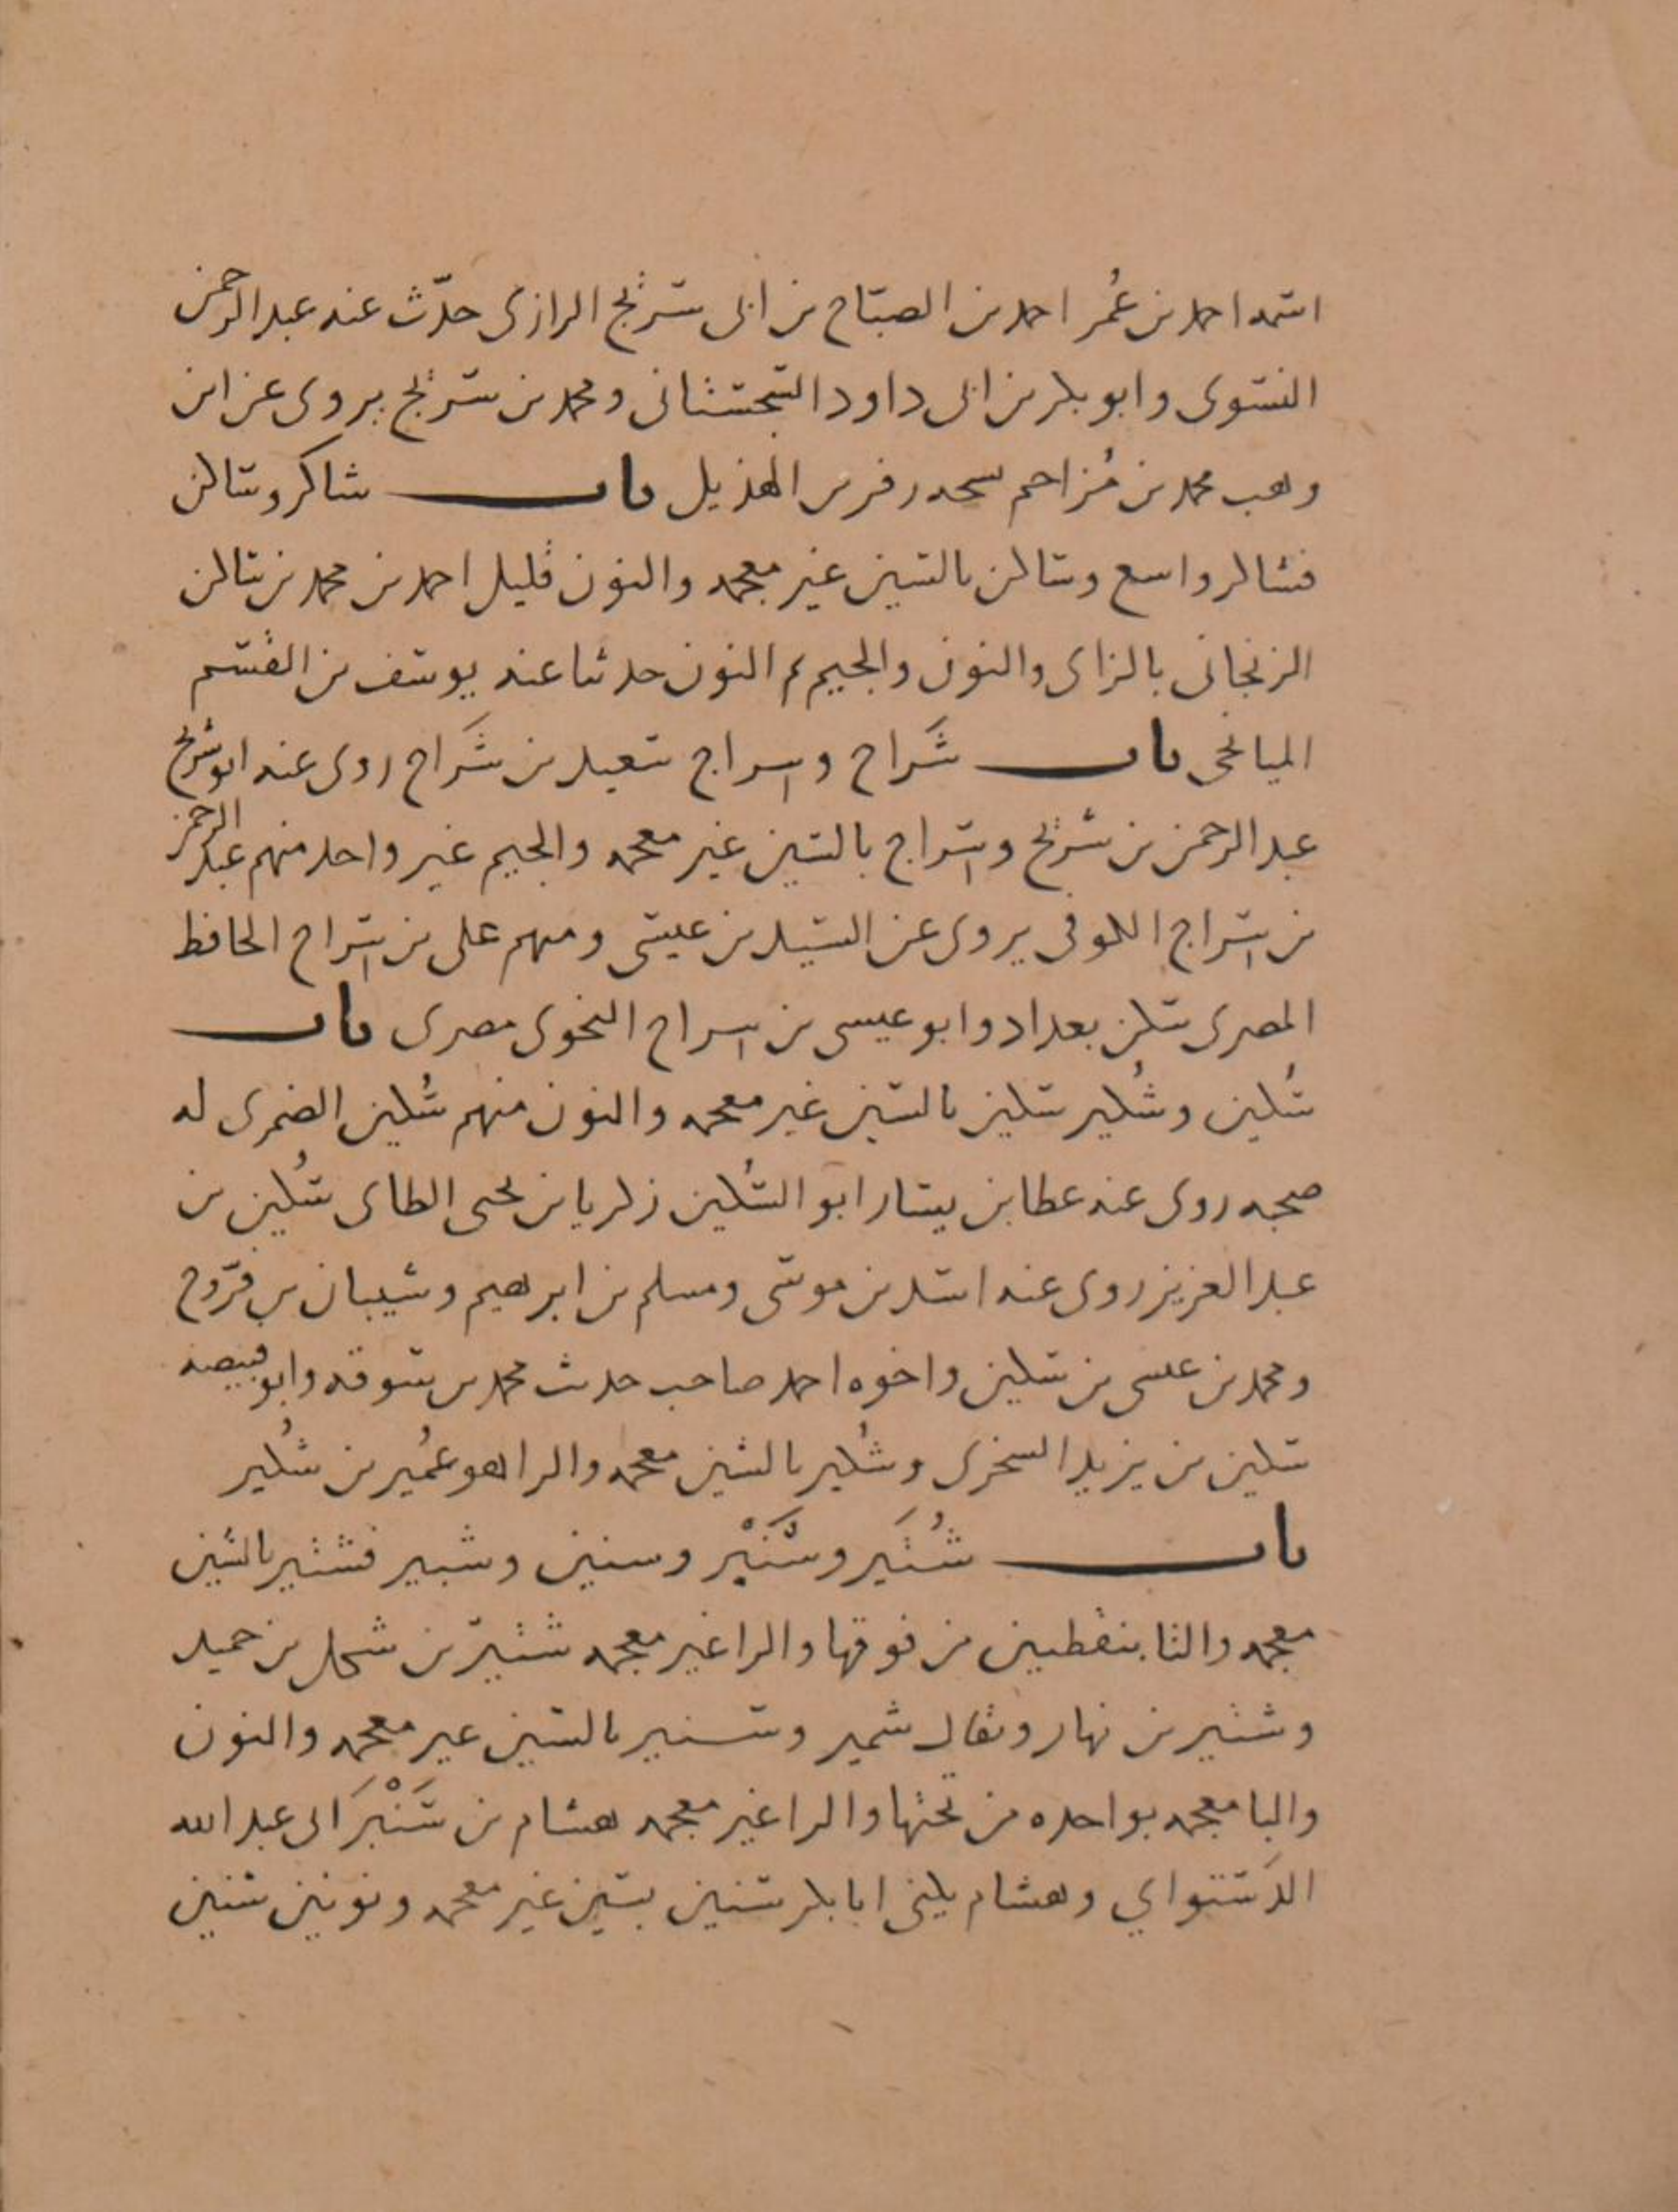 اسمه احمد بن عُمر احمد بن الصباح بن ابى سريج الرازى حدّث عنه عبد الرحمن
النسوى وابو بكر بن ابى داود السجستانى ومحمد بن سريج يروى عن ابن
وهب محمد بن مُزاحم زفر بن الهذيل باب شاكر وساكن
فشاكر واسع وساكن بالسين غير معجمه والنون قليل احمد بن محمد بن ساكن
الزنجانى بالزاى والنون والجيم ثم النون حدثنا عنه يوسف بن القسم
الميانجى باب شَراح وسراج سعيد بن شَراح روى عنه ابو شريح
عبد الرحمن بن شريح وسراج بالسين غير معجمه والجيم غير واحد منهم عبد الرحمن
بن سراج الكوفى يروى عن السيد بن عيسى ومنهم على بن سراج الحافظ
المصرى سكن بغداد وابو عيسى بن سراج النحوى مصرى باب
سُكين وشُكير سكين بالسين غير معجمه والنون منهم سُكين الضمرى له
صحبه روى عنه عطا بن يسار ابو السُكين زكريا بن يحيى الطاى سُكين بن
عبد العزيز روى عنه اسد بن موسى ومسلم بن ابرهيم وشيبان بن فرّوخ
ومحمد بن عيسى بن سكين واخوه احمد صاحب حديث محمد بن سوقه وابو قبيصه
سكين بن يزيد وشُكير بالشين معجمه والرا هو عُمير بن شُكير
باب شُتَير وسَنْبَر وسنين وشبير فشتير بالشين
معجمه والتا بنقطتين من فوقها والرا غير معجمه شتير بن شكل بن حميد
وشتير بن نهار ويقال سمير وسنبر بالسين غير معجمه والنون
والبا معجمه بواحده من تحتها والرا غير معجمه هشام بن سَنْبَر ابى عبد الله
الدَستواي وهشام يكنى ابا بكر سنين بسين غير معجمه ونونين سنين